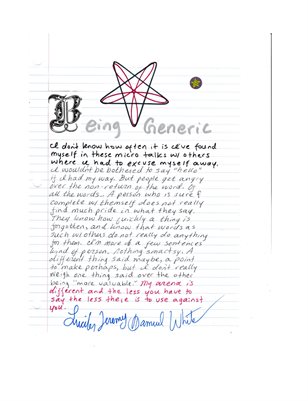 Being Generic
I don't know how often it is I've found
myself in these micro talks w/ others
where I had to excuse myself away.
I wouldn't be bothered to say "hello"
if I had my way. But people get angry
over the non-return of the word. Of
all the words... A person who is sure &
complete w/ themself does not really
find much pride in what they say.
They know how quickly a thing is
forgotten, and know that words as
such w/ others do not really do anything
for them. I'm more of a few sentences
kind of person. Nothing smartsy. A
different thing said maybe, a point
to make perhaps, but I don't really
weigh one thing said over the other
being "more valuable." My arena is
different and the less you have to
say the less there is to use against
you.
Lucifer Jeremy Damuel White